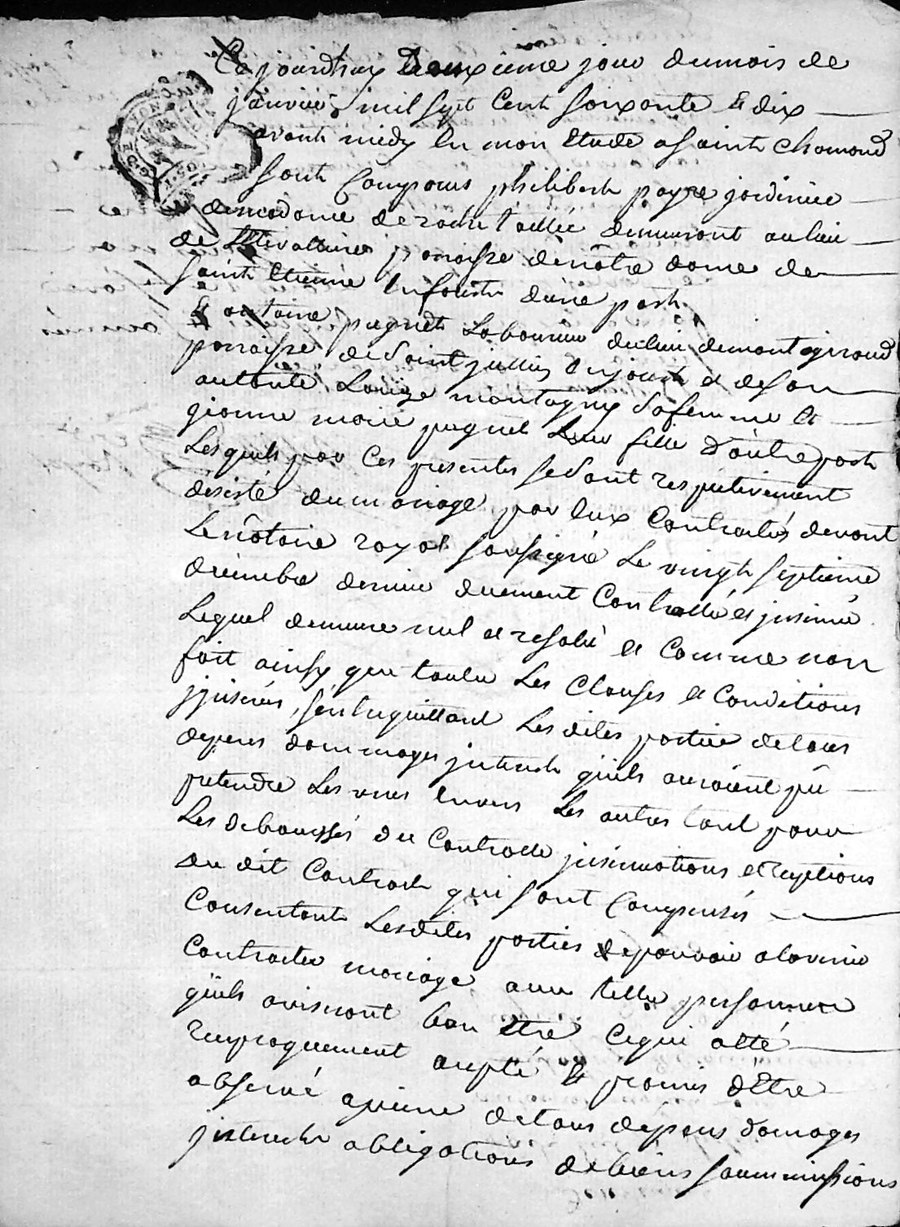 Ce jourdhuy deuxieme jour du mois de
janvier mil sept cent soixante & dix
avant midy en mon Etude a saint chamond
sont comparus philibert payre jardinier
de madame de rochetaillée demeurant au lieu
de parroisse de nôtre dame de
saint Etienne En foretz dune part
& antoine paquet Laboureur du lieu de montgiraud
parroisse de Saint jullien En jarest et de son
autorité Louise montagny Sa femme et
paquet Leur fille D'autre part
Lesquels par Ces presentes se sont respectivement
desisté du mariage par Eux Contracté devant
Le nôtaire royal soussigné Le vingt septieme
decembre dernier duement Controllé et jnsinué
Lequel demeure nul et resolu et Comme non
fait ainsy que toutes Les Clauses et Conditions
jnserées, s'entrequittant Les dites parties de tous
depens dommages jnterets quils auroient pû
pretendre Les uns Envers Les autres tant pour
Les deboursés du Controlle jnsinuations et Exptions
du dit Contract qui sont Compensés
Consentants Lesdites parties de pouvoir a lavenir
Contracter mariage avec telles personnes
quils aviseront bon Etre Ce qui a Eté
reciproquement accepté & promis d'Etre
observé a peine de tous dépens domages
jnterets obligations de biens soummissions